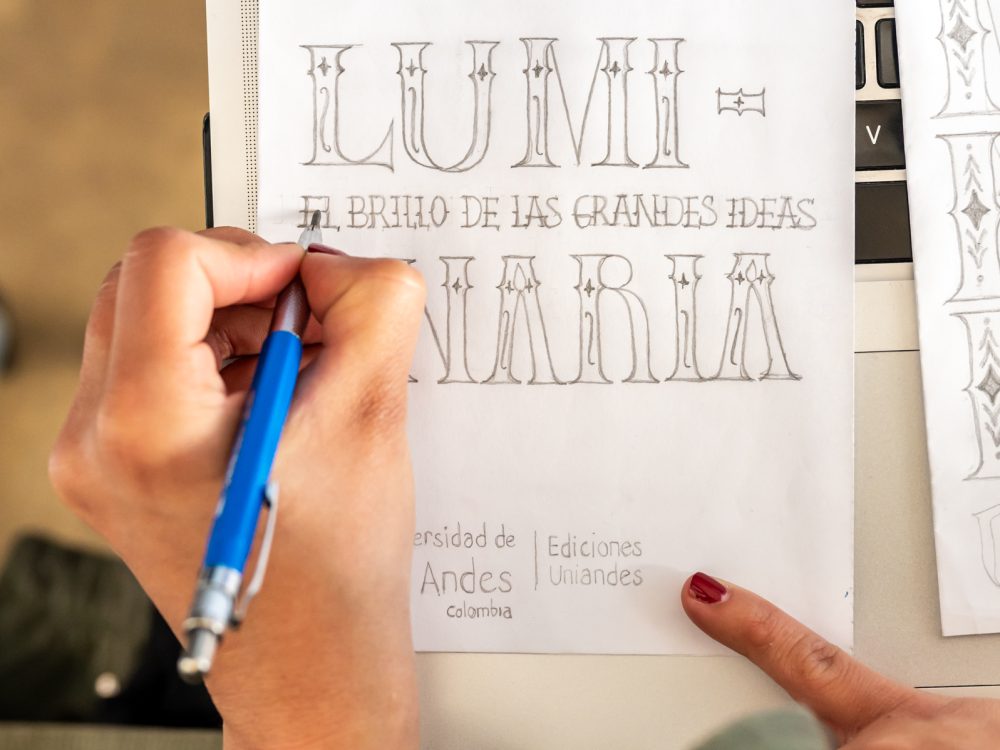 LUMI-
EL BRILLO DE LAS GRANDES IDEAS
NARIA
ersidad de
Andes
Colombia
Ediciones
Uniandes
V